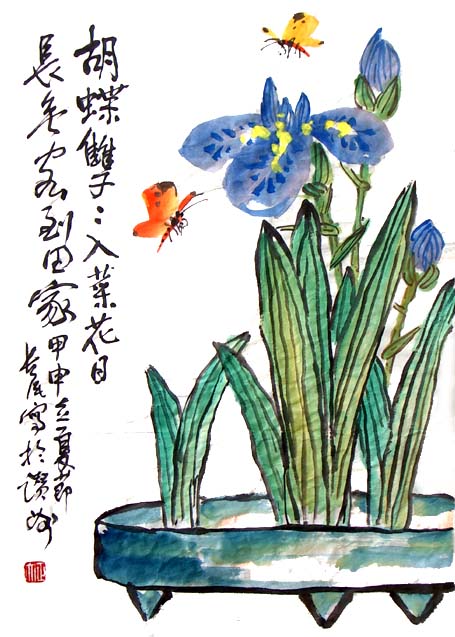 胡蝶雙〻入菜花日
長無客到田家甲申立夏節
寫於